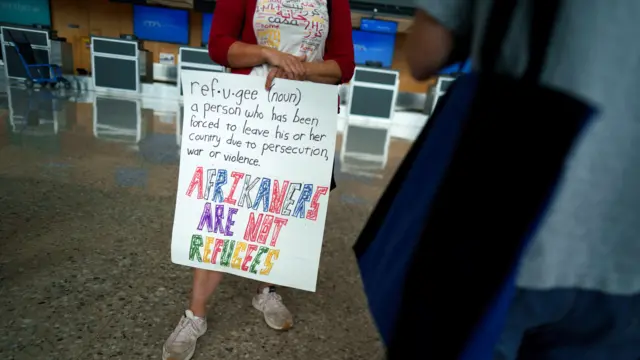 ref·u·gee (noun)
a person who has been
forced to leave his or her
country due to persecution,
war or violence.
AFRIKANERS
ARE NOT
REFUGEES